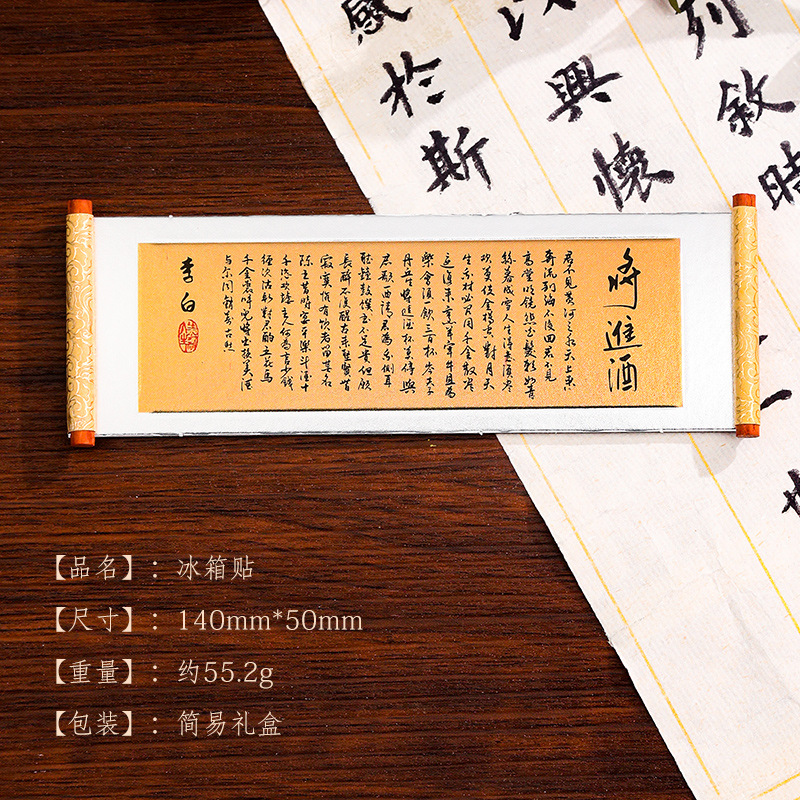 列敘時
以興懷
感於斯
將進酒
君不見黄河之水天上来
奔流到海不復回君不見
高堂明镜悲白髮朝如青
絲暮成雪人生得意須盡
欢莫使金樽空對月天
生我材必有用千金散盡
還復来烹羊宰牛且為
樂會須一飲三百杯岑夫子
丹丘生将進酒杯莫停與
君歌一曲請君為我側耳
聽鐘鼓饌玉不足貴但願
長醉不復醒古来聖賢皆
寂寞惟有飲者留其名
陳王昔時宴平樂斗酒十
千恣欢谑主人何為言少錢
徑須沽取對君酌五花馬
千金裘呼兒将出换美酒
与尔同銷萬古愁
李白
【品名】：冰箱贴
【尺寸】：140mm*50mm
【重量】：约55.2g
【包装】：简易礼盒